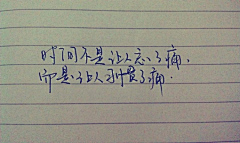 时间不是让人忘了痛.
而是让人习惯了痛.